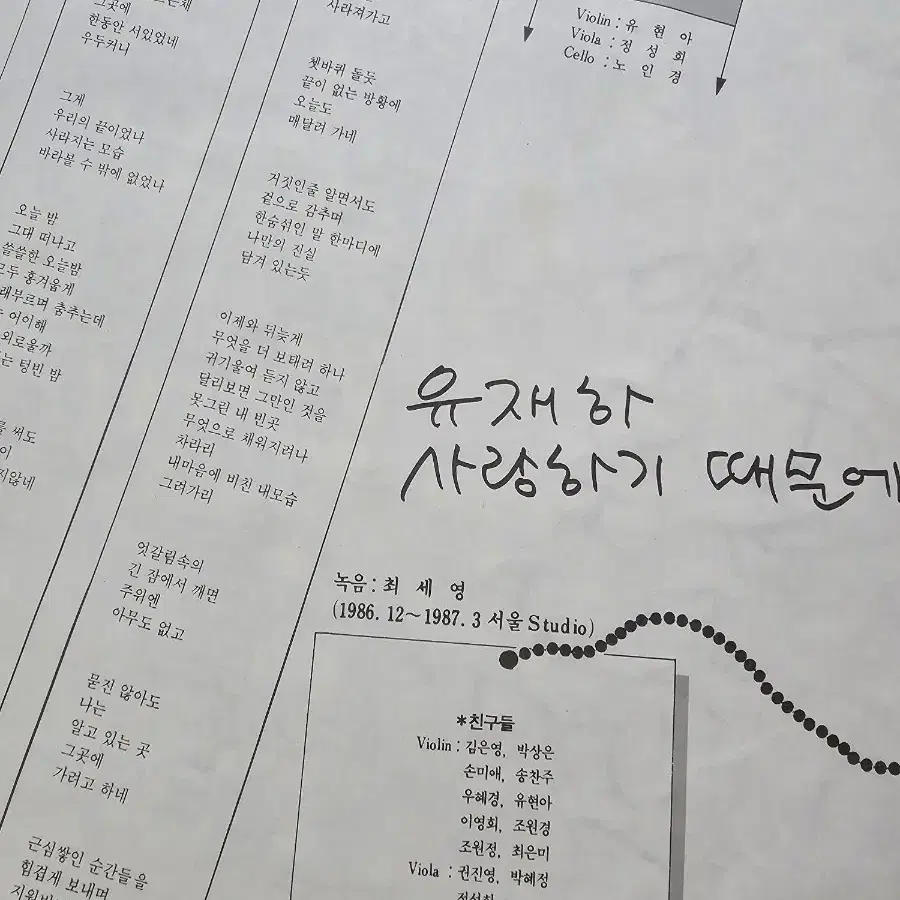 그곳에
한동안 서있었네
우두커니
그게
우리의 끝이었나
사라지는 모습
바라볼 수 밖에 없었나
오늘 밤
그대 떠나고
쓸쓸한 오늘밤
모두 흥겨웁게
래부르며 춤추는데
어이해
외로울까
는 텅빈 밤
를 써도
이
지않네
사라져가고
쳇바퀴 돌듯
끝이 없는 방황에
오늘도
매달려 가네
거짓인줄 알면서도
겉으로 감추며
한숨섞인 말 한마디에
나만의 진실
담겨 있는듯
이제와 뒤늦게
무엇을 더 보태려 하나
귀기울여 듣지 않고
달리보면 그만인 것을
못그린 내 빈곳
무엇으로 채워지려나
차라리
내마음에 비친 내모습
그려가리
엇갈림속의
긴 잠에서 깨면
주위엔
아무도 없고
묻진 않아도
나는
알고 있는 곳
그곳에
가려고 하네
근심쌓인 순간들을
힘겹게 보내며
Violin : 유 현 아
Viola : 정 성 희
Cello : 노 인 경
유재하
사랑하기 때문에
녹음 : 최 세 영
(1986. 12～1987. 3 서울 Studio)
*친구들
Violin : 김은영, 박상은
손미애, 송찬주
우혜경, 유현아
이영희, 조원경
조원정, 최은미
Viola : 권진영, 박혜정